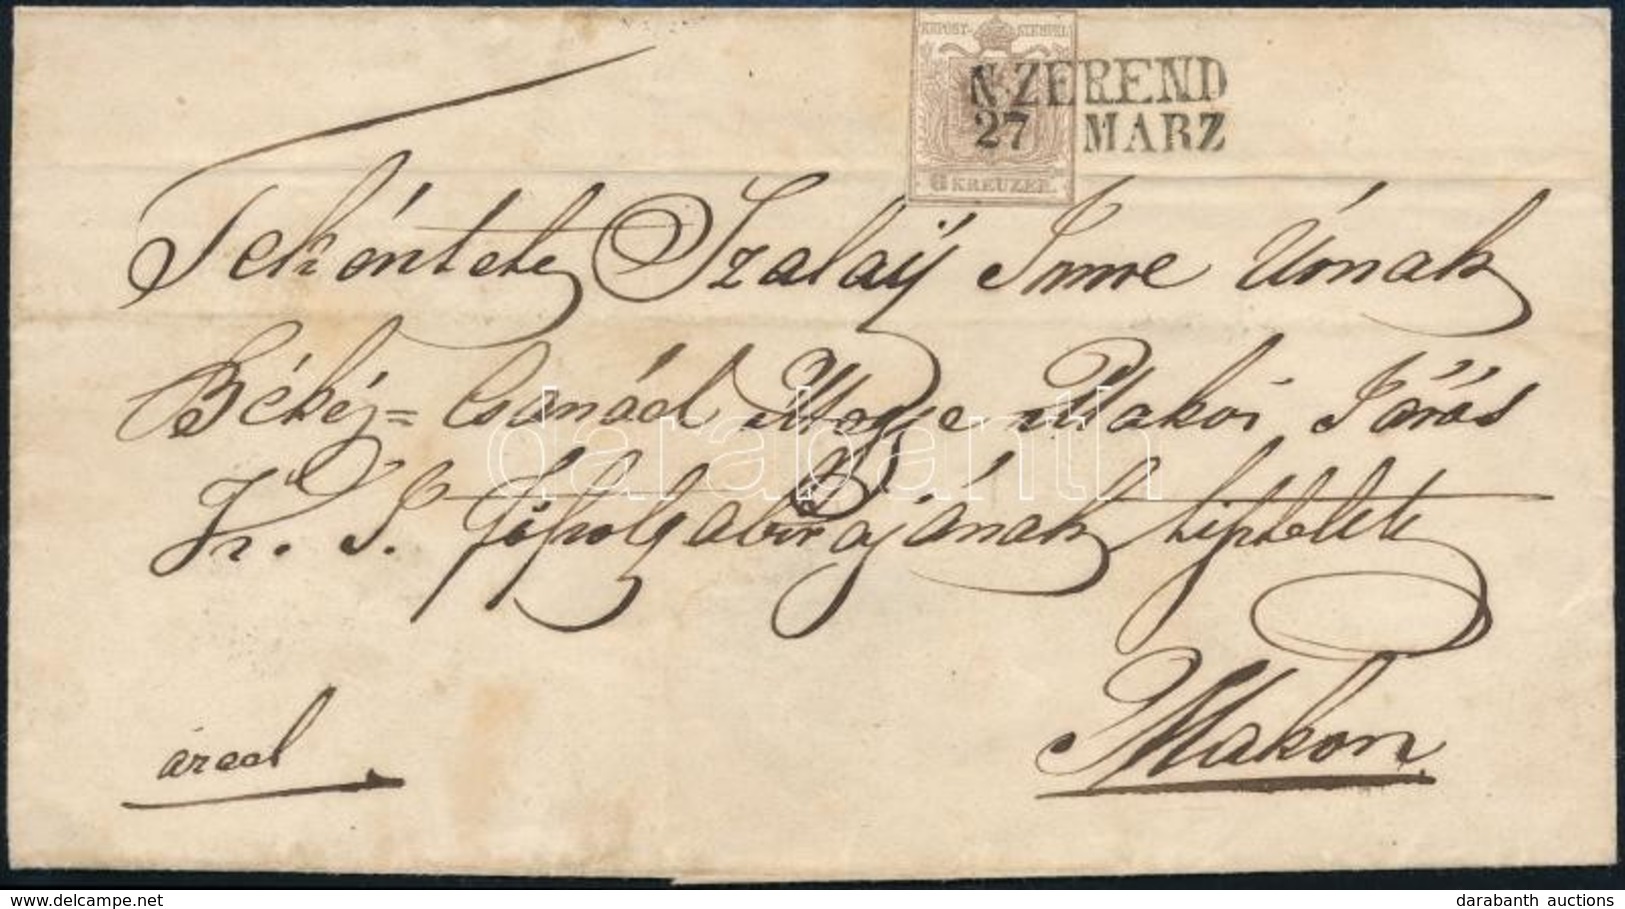 KKPOST-STEMPEL
6 KREUZER.
N. ZEREND
27 MARZ
Tekéntetes Szalaÿ Imre Úrnak
Békéz= Csanád Megye Makoi Járás
K. S. Föszolgabirájának tisztelette
árad
Makon.
darabanth
www.delcampe.net
darabanth auctions